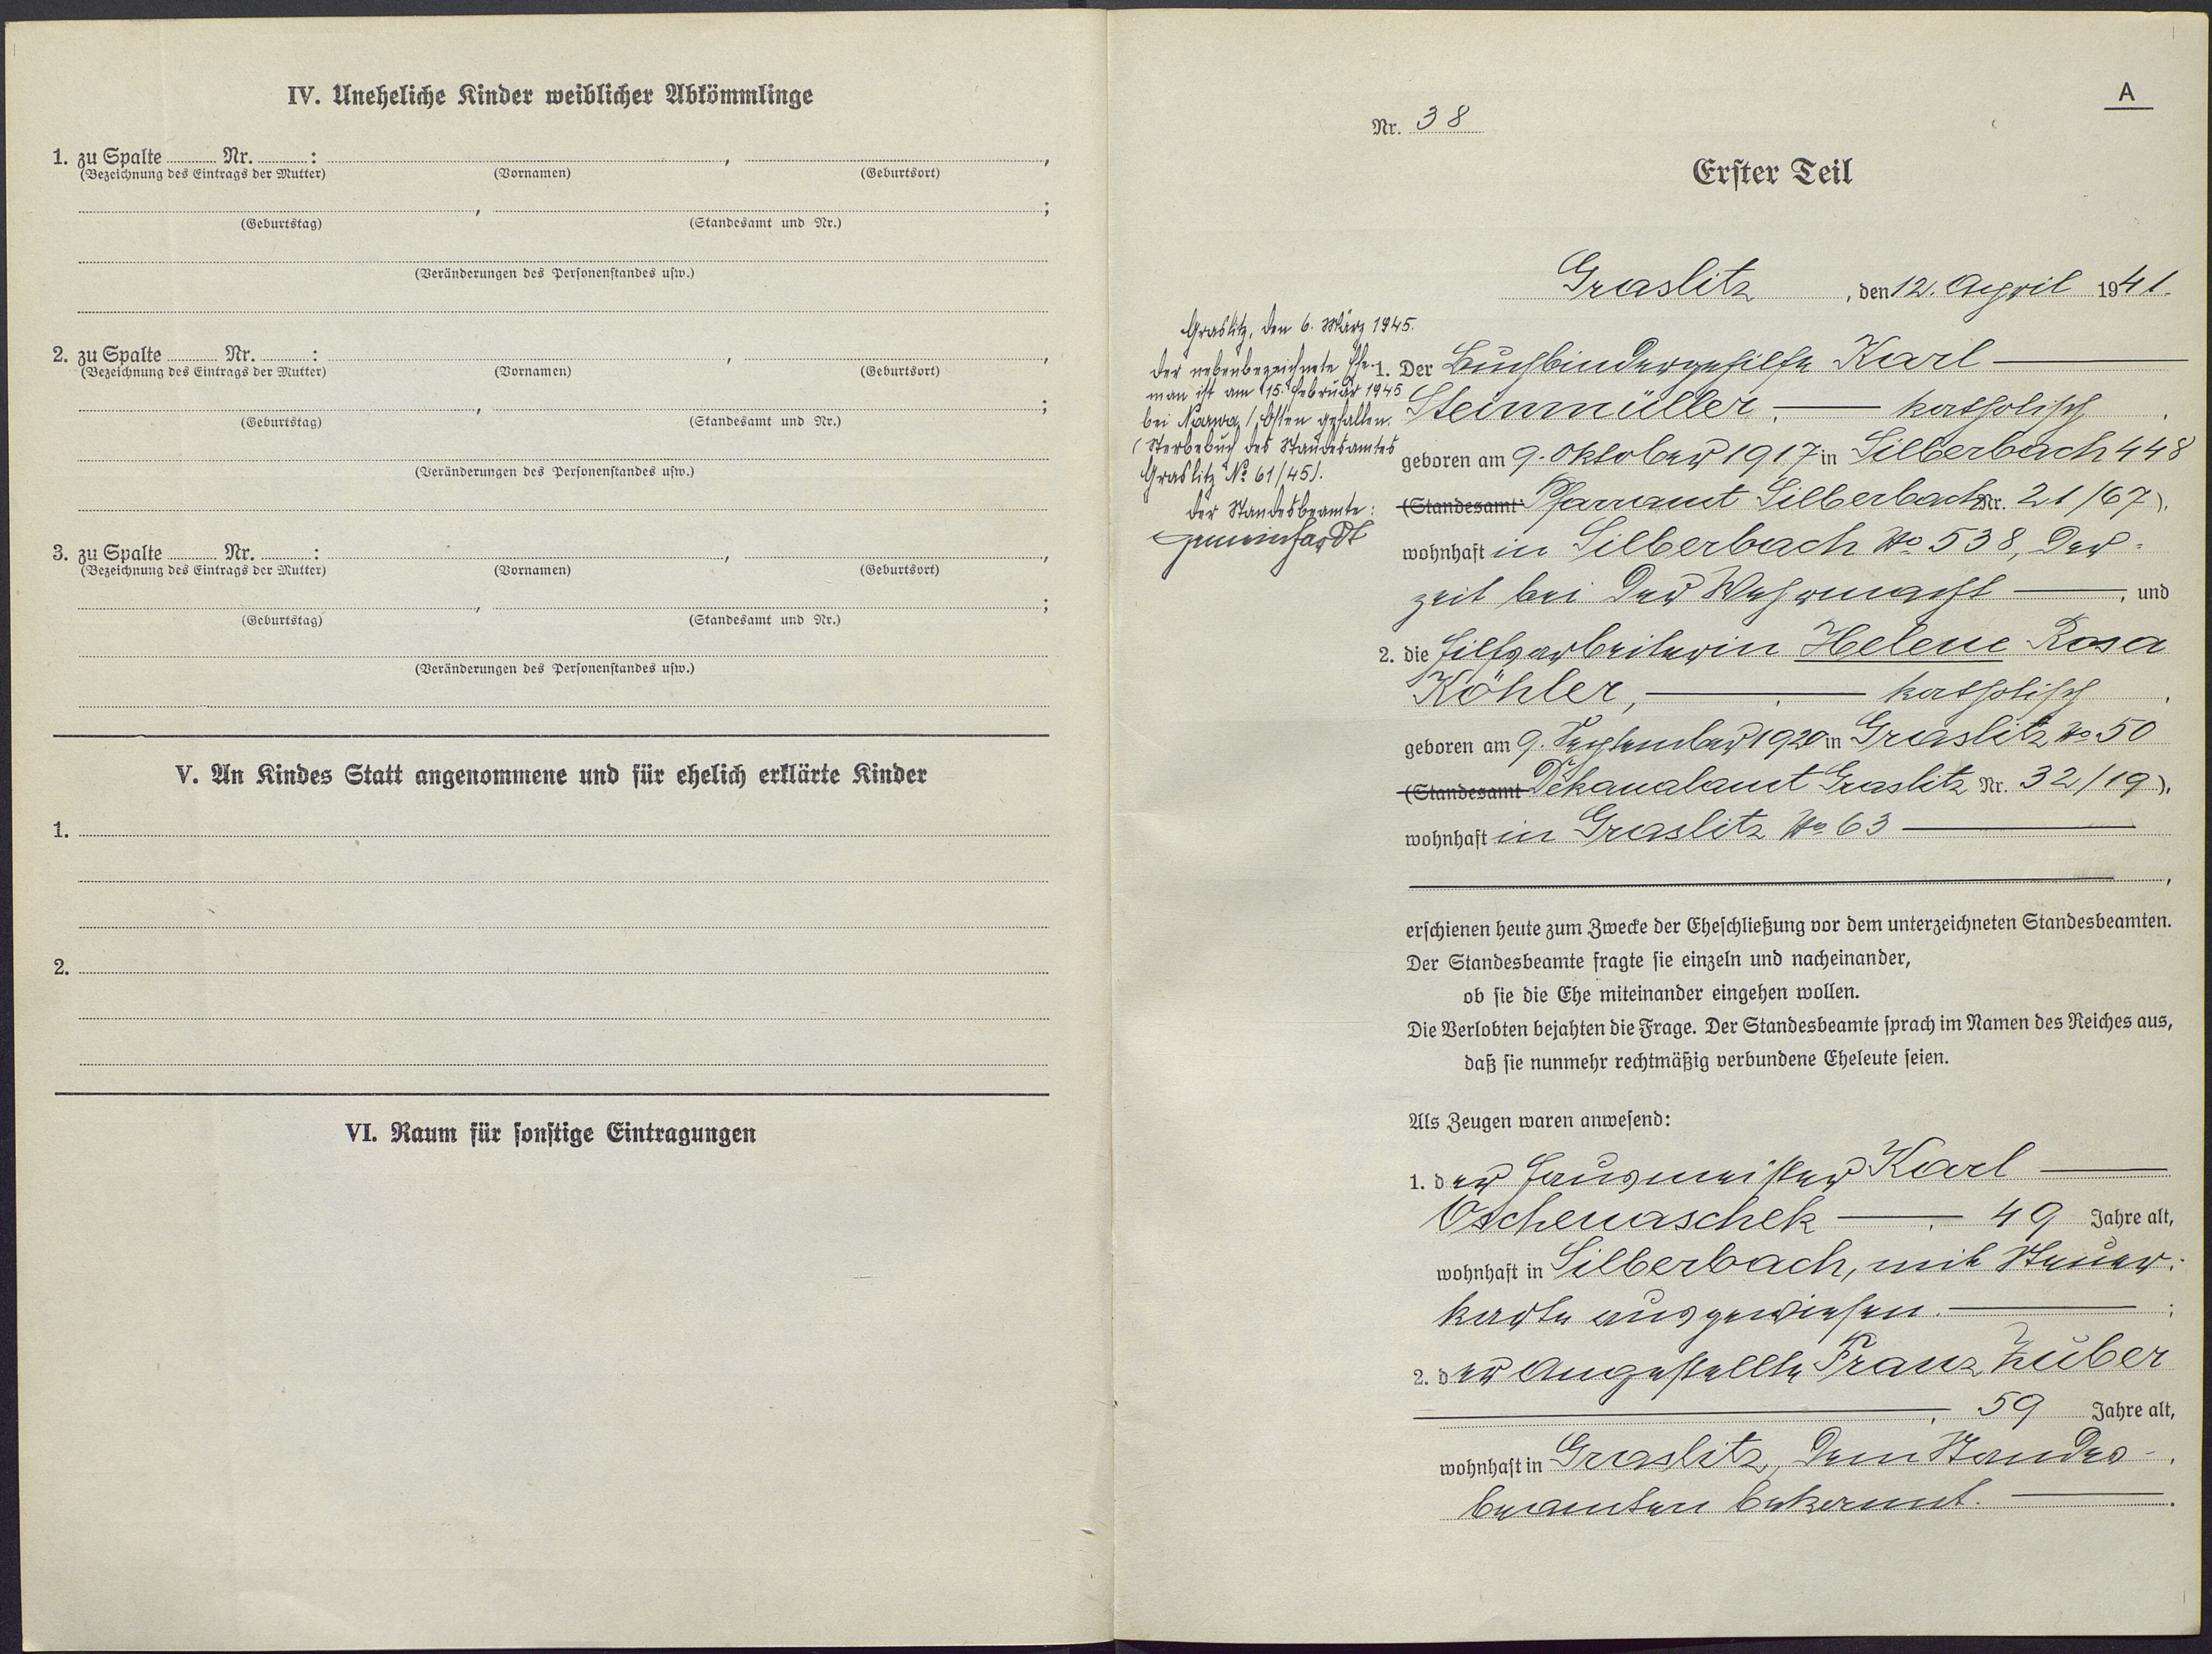 IV. Uneheliche Kinder weiblicher Abkömmlinge
1. zu Spalte ........ Nr. ........ : ........, ........,
(Bezeichnung des Eintrags der Mutter) (Vornamen) (Geburtsort)
........, ........;
(Geburtstag) (Standesamt und Nr.)
(Veränderungen des Personenstandes usw.)
2. zu Spalte ........ Nr. ........ : ........, ........,
(Bezeichnung des Eintrags der Mutter) (Vornamen) (Geburtsort)
........, ........;
(Geburtstag) (Standesamt und Nr.)
(Veränderungen des Personenstandes usw.)
3. zu Spalte ........ Nr. ........ : ........, ........,
(Bezeichnung des Eintrags der Mutter) (Vornamen) (Geburtsort)
........, ........;
(Geburtstag) (Standesamt und Nr.)
(Veränderungen des Personenstandes usw.)
V. An Kindes Statt angenommene und für ehelich erklärte Kinder
1.
2.
VI. Raum für sonstige Eintragungen
A
Nr. 38
Erster Teil
Graslitz, den 12. April 1941.
Graslitz, den 6. März 1945.
Der nebenbezeichnete Ehe-
man ist am 15. Februar 1945
bei /Osten gefallen.
(Sterbebuch des Standesamtes
Graslitz No 61/45).
Der Standesbeamte:
Gemeinhardt
1. Der Buchbindergehilfe Karl
Steinmüller, katholisch,
geboren am 9. Oktober 1917 in Silberbach 448
(Standesamt Pfarramt Silberbach Nr. 21/67),
wohnhaft in Silberbach No 538, der-
zeit bei der Wehrmacht, und
2. die Hilfsarbeiterin Helene Rosa
Köhler, katholisch,
geboren am 9. September 1920 in Graslitz No 50
(Standesamt Dekanalamt Graslitz Nr. 32/19),
wohnhaft in Graslitz No 63
erschienen heute zum Zwecke der Eheschließung vor dem unterzeichneten Standesbeamten.
Der Standesbeamte fragte sie einzeln und nacheinander,
ob sie die Ehe miteinander eingehen wollen.
Die Verlobten bejahten die Frage. Der Standesbeamte sprach im Namen des Reiches aus,
daß sie nunmehr rechtmäßig verbundene Eheleute seien.
Als Zeugen waren anwesend:
1. der Hausmeister Karl
Oschenaschek, 49 Jahre alt,
wohnhaft in Silberbach, mit Steuer-
karte ausgewiesen.;
2. der Angestellte Franz Zuber
, 59 Jahre alt,
wohnhaft in Graslitz, dem Standes-
beamten bekannt.